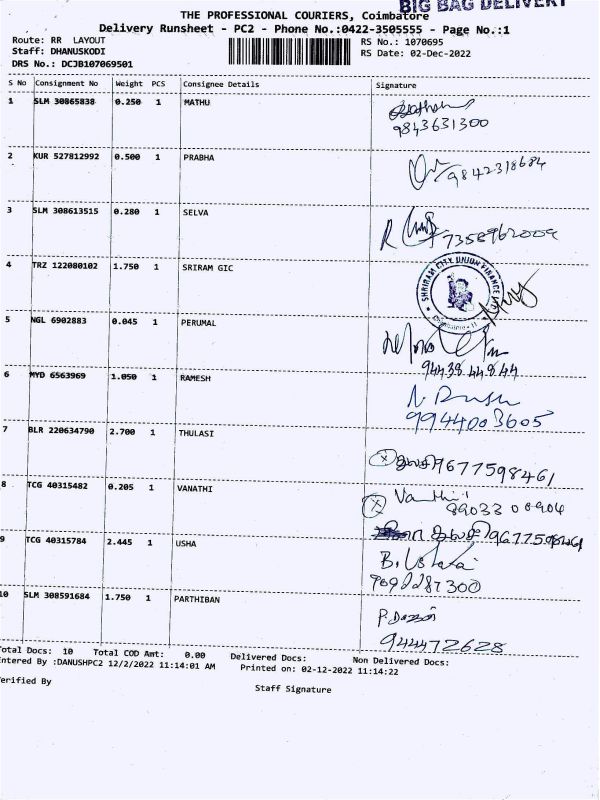 BIG BAG DELIVERY
THE PROFESSIONAL COURIERS, Coimbatore
Delivery Runsheet - PC2 - Phone No.:0422-3505555 - Page No.:1
Route: RR LAYOUT
RS No.: 1070695
Staff: DHANUSKODI
RS Date: 02-Dec-2022
DRS No.: DCJB107069501
S No Consignment No Weight PCS Consignee Details Signature
1 SLM 30865838 0.250 1 MATHU
9843631300
2 KUR 527812992 0.500 1 PRABHA
9842318684
3 SLM 308613515 0.280 1 SELVA
7358962009
4 TRZ 122080102 1.750 1 SRIRAM GIC
SHRIRAM CITY UNION FINANCE
5 NGL 6902883 0.045 1 PERUMAL
94438 44844
6 MYD 6563969 1.050 1 RAMESH
9944003605
7 BLR 220634790 2.700 1 THULASI
9677598461
8 TCG 40315482 0.205 1 VANATHI
89033 00904
9 TCG 40315784 2.445 1 USHA
10 SLM 308591684 1.750 1 PARTHIBAN
944472628
Total Docs: 10 Total COD Amt: 0.00 Delivered Docs: Non Delivered Docs:
ntered By :DANUSHPC2 12/2/2022 11:14:01 AM Printed on: 02-12-2022 11:14:22
erified By
Staff Signature